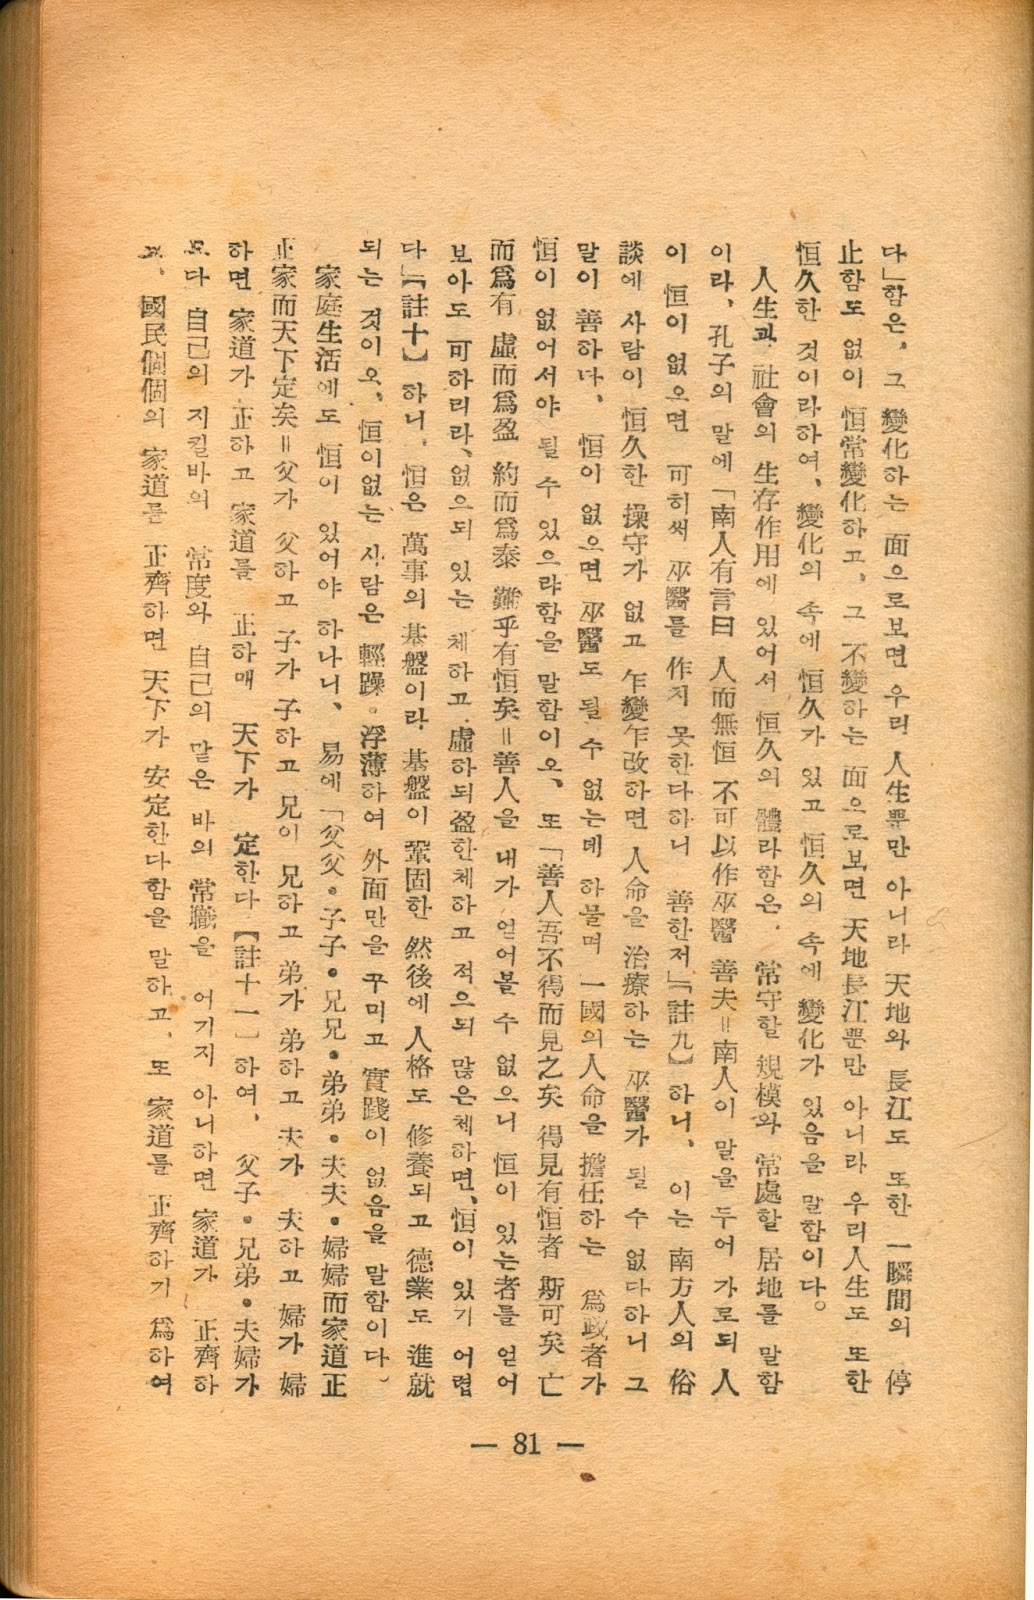 다」함은, 그 變化하는 面으로보면 우리 人生뿐만 아니라 天地와 長江도 또한 一瞬間의 停
止함도 없이 恒常變化하고, 그 不變하는 面으로보면 天地長江뿐만 아니라 우리人生도 또한
恒久한 것이라하여, 變化의 속에 恒久가 있고 恒久의 속에 變化가 있음을 말함이다。
人生과 社會의 生存作用에 있어서 恒久의 體라함은, 常守할 規模와 常處할 居地를 말함
이라, 孔子의 말에「南人有言曰 人而無恒 不可以作巫醫 善夫=南人이 말을두어 가로되 人
이 恒이 없으면 可히써 巫醫를 作지 못한다하니 善한저」【註九】하니, 이는 南方人의 俗
談에 사람이 恒久한 操守가 없고 乍變乍改하면 人命을 治療하는 巫醫가 될 수 없다하니 그
말이 善하다, 恒이 없으면 巫醫도 될수 없는데 하물며 一國의人命을 擔任하는 爲政者가
恒이 없어서야 될 수 있으랴함을 말함이오, 또「善人吾不得而見之矣 得見有恒者 斯可矣 亡
而爲有 虛而爲盈 約而爲泰 難乎有恒矣=善人을 내가 얻어볼 수 없으니 恒이 있는者를 얻어
보아도 可하리라, 없으되 있는 체하고 虛하되盈한체하고 적으되 많은체하면, 恒이 있기 어렵
다」【註十】하니, 恒은 萬事의 基盤이라 基盤이 鞏固한 然後에 人格도 修養되고 德業도 進就
되는 것이오, 恒이없는 사람은 輕躁·浮薄하여 外面만을 꾸미고 實踐이 없음을 말함이다。
家庭生活에도 恒이 있어야 하나니, 易에「父父·子子·兄兄·弟弟·夫夫·婦婦而家道正
正家而天下定矣=父가 父하고 子가 子하고 兄이 兄하고 弟가 弟하고 夫가 夫하고 婦가 婦
하면 家道가 正하고 家道를 正하매 天下가 定한다【註十一】하여, 父子·兄弟·夫婦가
모다 自己의 지킬바의 常度와 自己의 맡은 바의 常職을 어기지 아니하면 家道가 正齊하
고, 國民個個의 家道를 正齊하면 天下가 安定한다함을 말하고, 또 家道를 正齊하기 爲하여
— 81 —